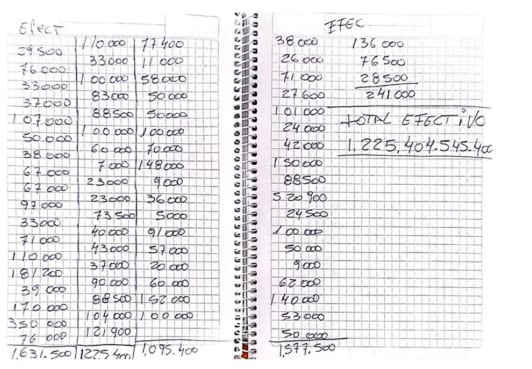 Efect
29500
76000
33000
37000
107000
50.000
38000
67000
67000
97000
33000
71000
110000
181200
39000
170000
350000
76000
1.631.500
110000
33000
100000
83000
88500
100000
60000
7000
23000
23000
73500
40000
43000
37000
90000
88500
104000
121900
1225400
77400
11000
58000
50000
50000
100000
70000
148000
9000
36000
5000
91000
57000
20000
60000
152000
100000
1.095.400
EFEC
38000
26000
71000
27600
101000
24000
42000
150000
88500
520900
24500
100.000
50000
9000
62000
140000
53000
50000
1577.500
136000
76500
28500
241000
TOTAL EFECTIVO
1.225.404.545.400